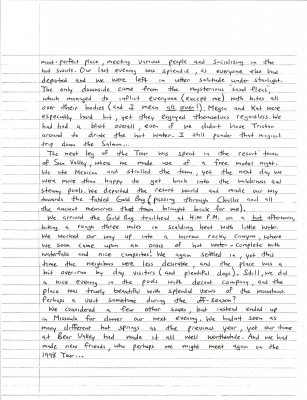 most-perfect place, meeting various people and socializing in the
hot swirls. Our last evening was splendid, as everyone else had
departed and we were left in utter solitude under starlight.
The only downside came from the mysterious "sand fleas",
which managed to inflict everyone (except me) with bites all
over their bodies (and I mean all over!). Megan and Kat were
especially hard hit, yet they enjoyed themselves regardless. We
had had a blast overall, even if we didn't have Tristan
around to divide the hot water. I still ponder that magical
trip down the Salmon....
The next leg of the Tour was spent in the resort town
of Sun Valley, where we made use of a free model night.
We ate Mexican and strolled the town, yet the next day we
were more than happy to get back into the wilderness and
steamy pools. We departed the resort world and made our way
towards the fabled Gold Bug (passing through Challis and all
the ancient memories that town brought back for me).
We arrived the Gold Bug trailhead at 4:00 P.M. on a hot afternoon,
hiking a rough three miles in scalding heat with little water.
We worked our way up into a narrow rocky canyon, where
we soon came upon an oasis of hot water - complete with
waterfalls and nice campsites. We again settled in, yet this
time the neighbors were less desirable, and the place was a
bit over-run by day visitors (and plentiful dogs). Still, we did
a nice evening in the pools with decent company, and the
place was truly beautiful with splendid views of the mountains.
Perhaps a visit sometime during the off-season?
We considered a few other soaks, but instead ended up
in Missoula for dinner our next evening. We hadn't seen as
many different hot springs as the previous year, yet our time
at Bear Valley had made it all well worthwhile. And we had
made new friends, who perhaps we might meet again on the
1998 Tour...